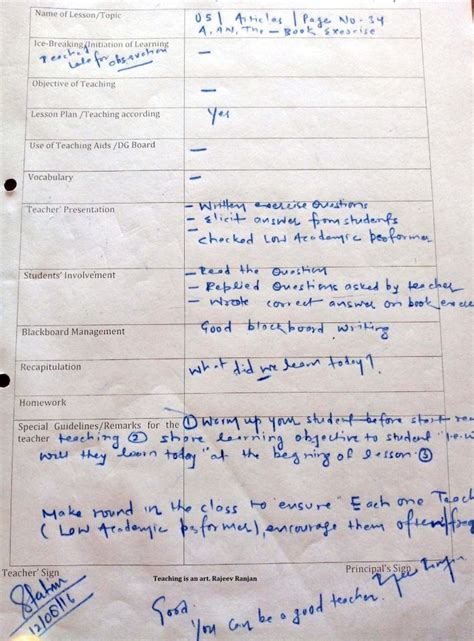 Name of Lesson/Topic 05 | Articles | Page No-34
A, AN, The – Book Exercise
Ice-Breaking/Initiation of Learning –
Reached late for observation
Objective of Teaching –
Lesson Plan /Teaching according Yes
Use of Teaching Aids /DG Board –
Vocabulary –
Teacher' Presentation – Written exercise Questions
– Elicit answer from students
– checked Low Academic performer
Students' Involvement – Read the Question
– Replied Questions asked by teacher
– Wrote correct answer on book
Blackboard Management Good blackboard writing
Recapitulation What did we learn today?
Homework
Special Guidelines/Remarks for the teacher ① Warm up your student before start
teaching ② share learning objective to student
will they learn today" at the begning of lesson. ③
Make round in the class to "ensure" Each one
(Low Academic performer), encourage them often
Teacher' Sign Teaching is an art. Rajeev Ranjan Principal's Sign
12/08/16
Good.
You can be a good teacher.